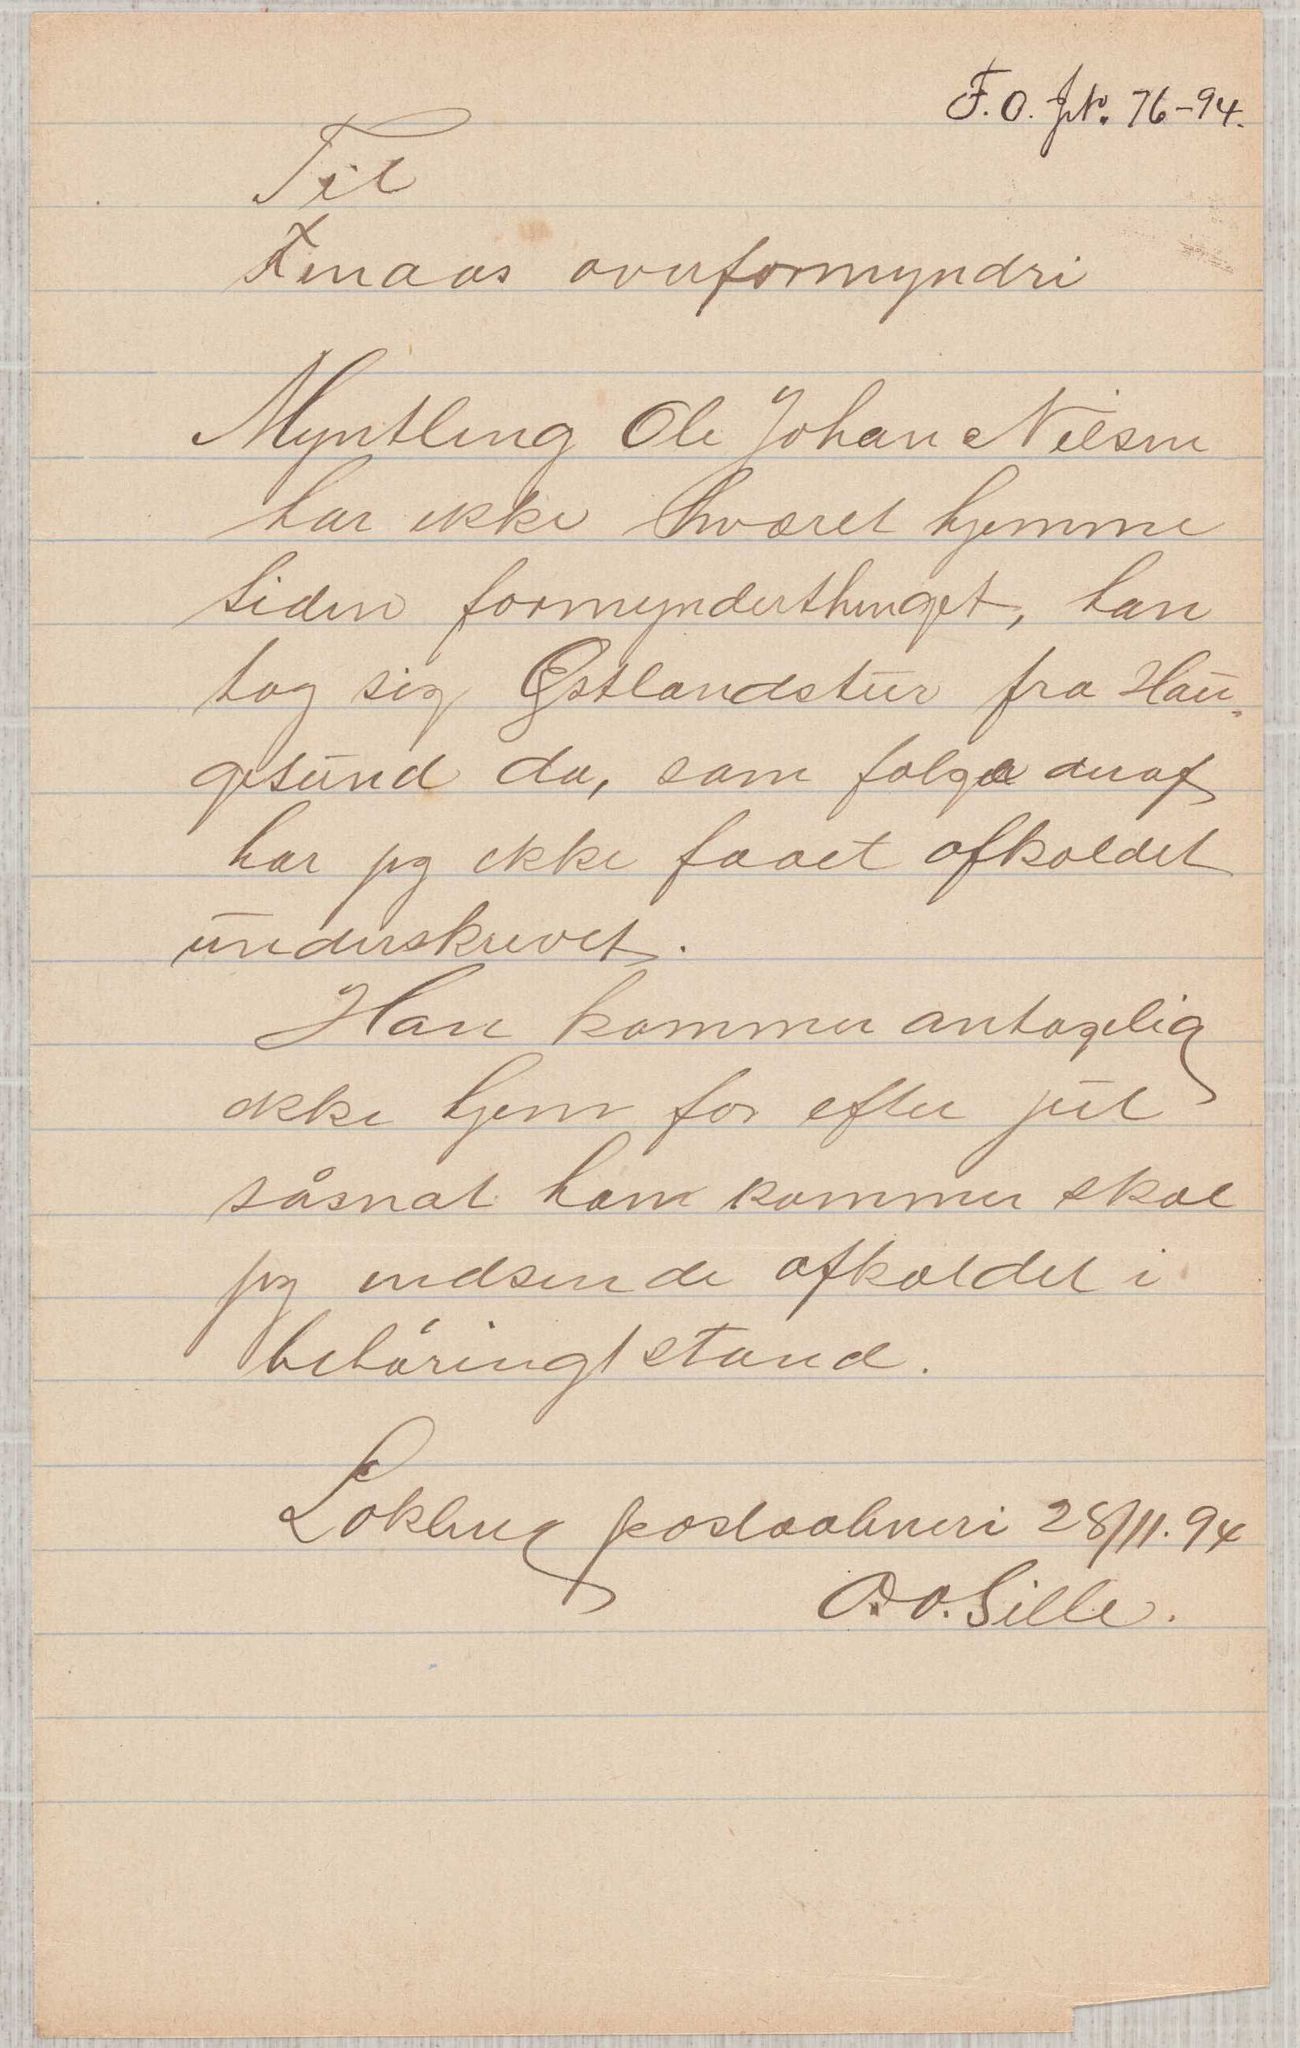 F. O. J.No. 76-94.
Til
Finaas overformynderi
Myntling Ole Johan Nilsen
har ikke hværet hjemme
siden formynderthinget, han
tog sig Østlandstur fra Hau-
gesund da, som følge deraf
har jeg ikke faaet afkaldet
underskrevet.
Han kommer antagelig
ikke hjem for efter jul
såsnat han kommer skal
jeg indsende afkaldet i
behöringstand.
Lokling postaabneri 28/11.94
O. O. Sille.